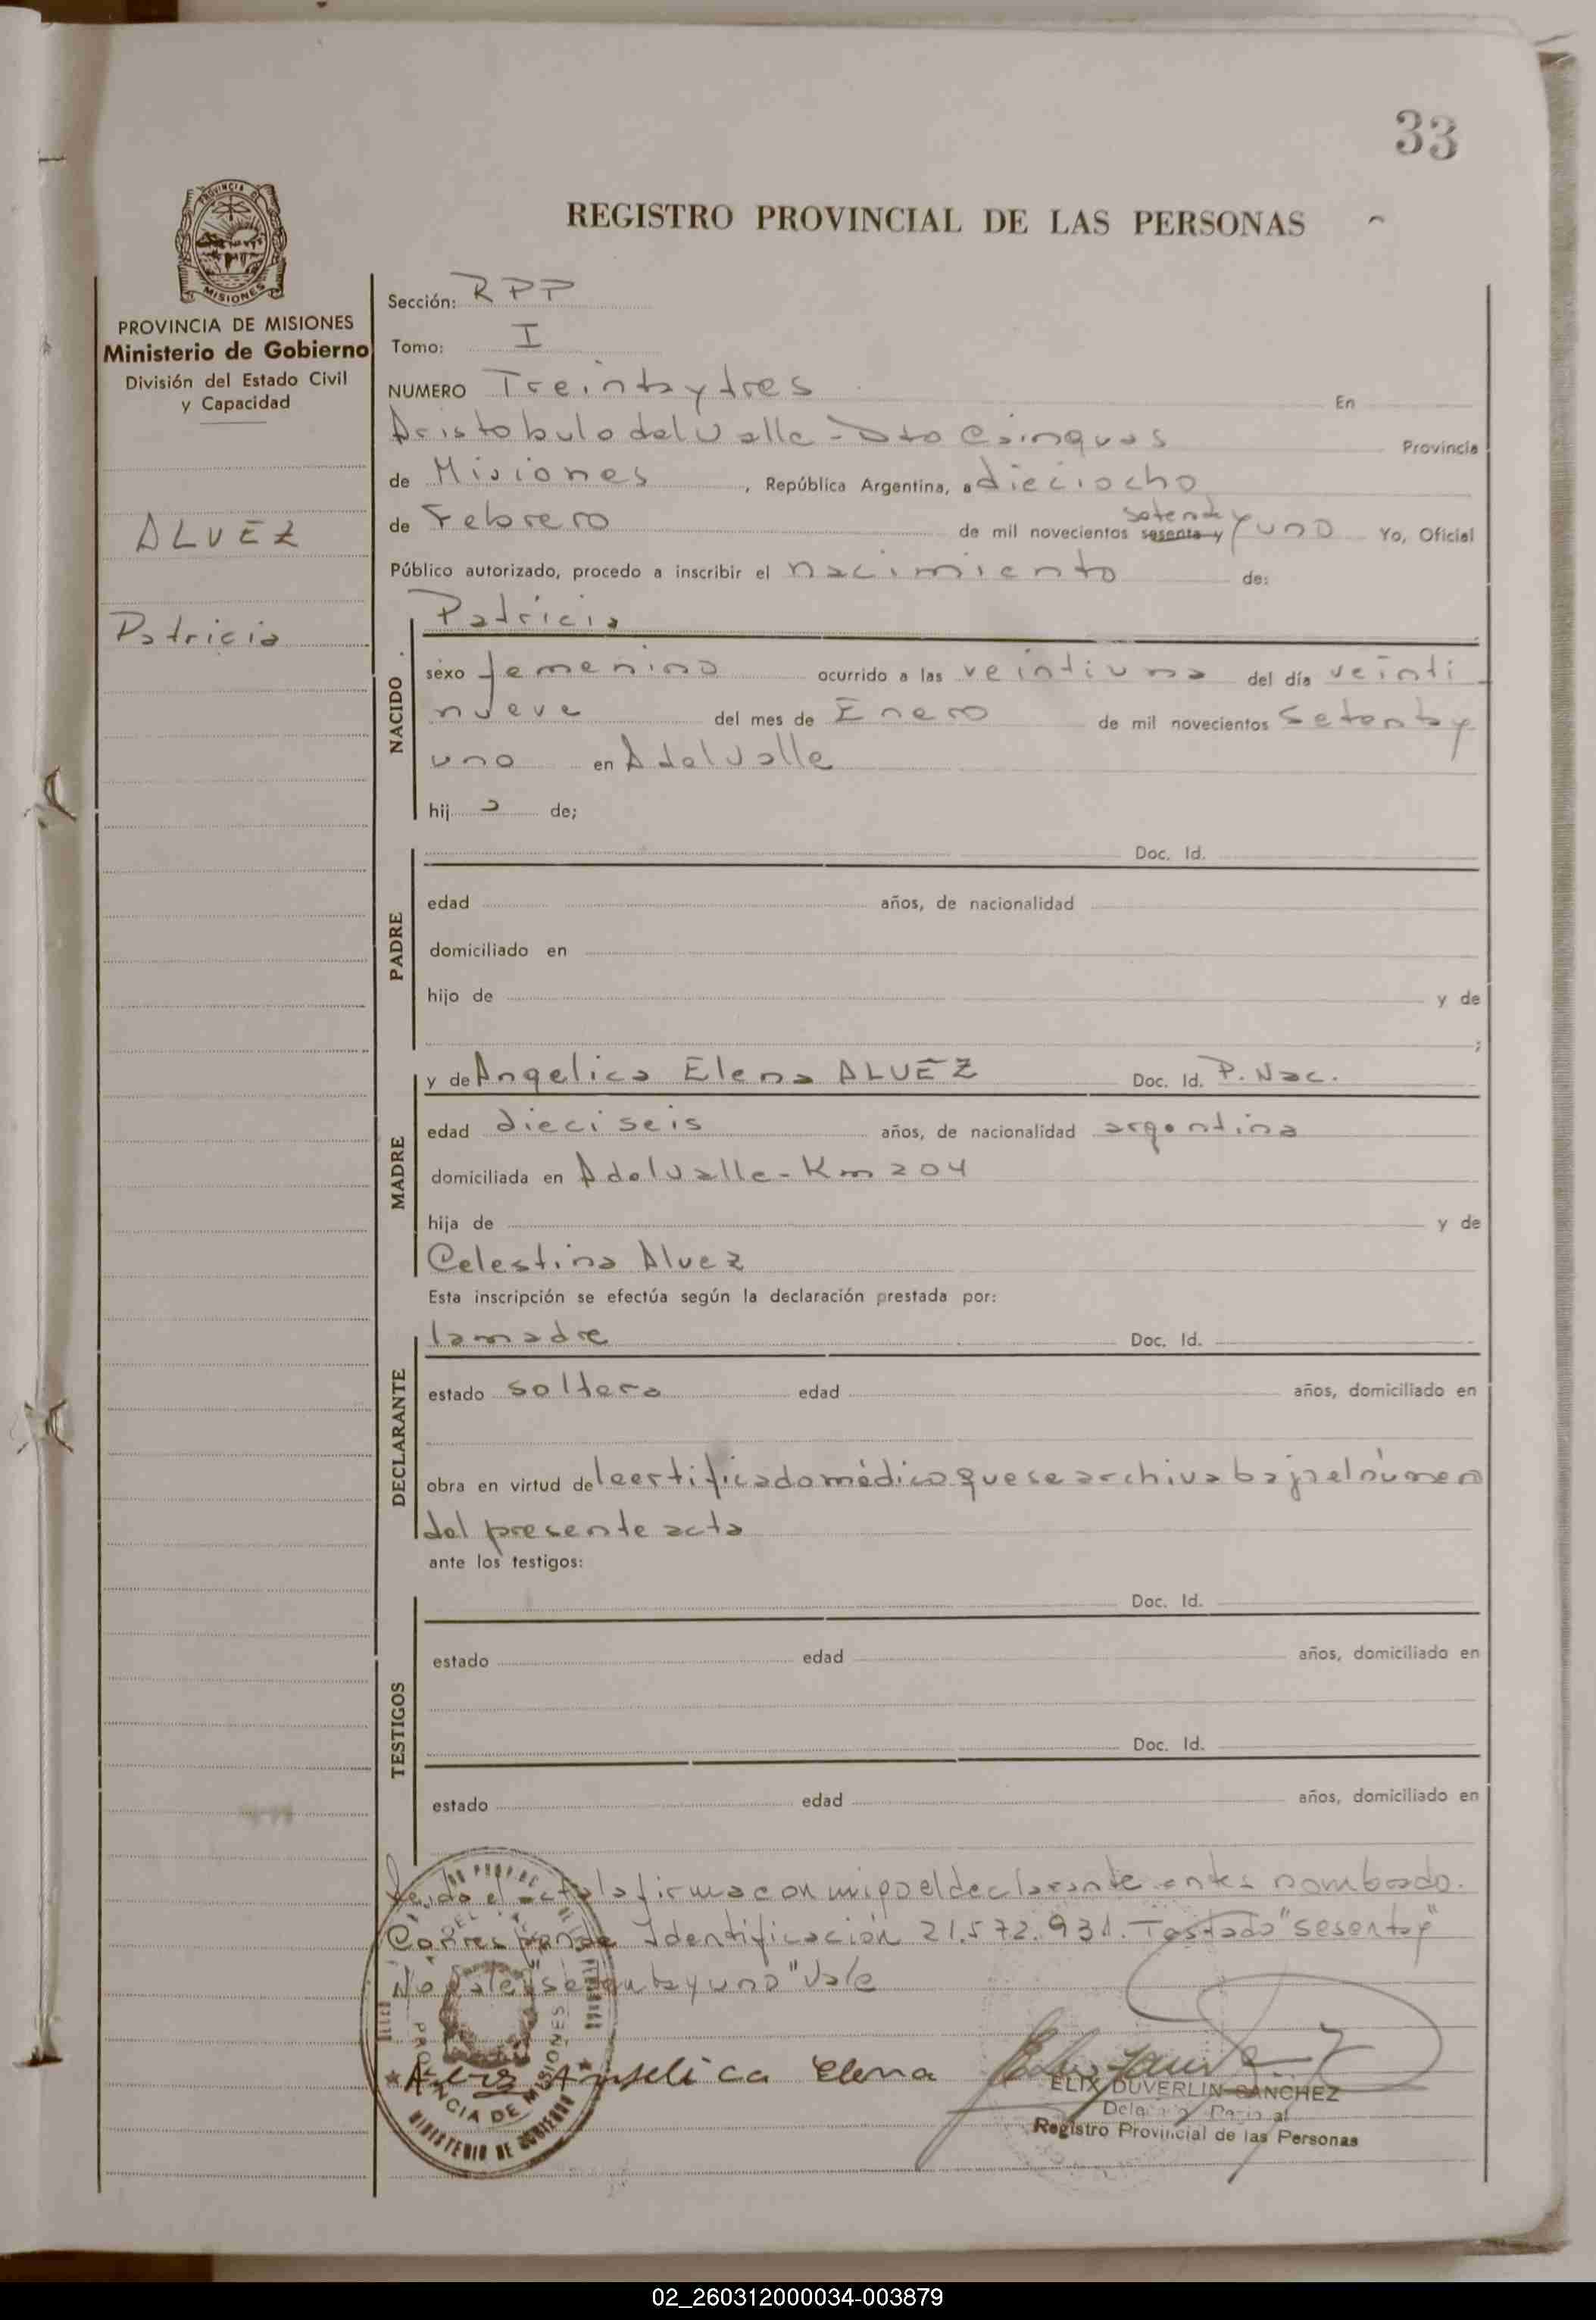 33
REGISTRO PROVINCIAL DE LAS PERSONAS
PROVINCIA DE MISIONES
Ministerio de Gobierno
División del Estado Civil
y Capacidad
ALVEZ
Patricia
Sección: RPP
Tomo: I
NUMERO Treinta y tres En
Aristobulo del Valle - Dto Cainguas Provincia
de Misiones, República Argentina, a dieciocho
de Febrero de mil novecientos sesenta y setenta y uno Yo, Oficial
Público autorizado, procedo a inscribir el nacimiento de:
NACIDO
Patricia
sexo femenino ocurrido a las veintiuna del día veinti
nueve del mes de Enero de mil novecientos Setenta y
uno en A del Valle
hij a de;
PADRE
Doc. Id.
edad años, de nacionalidad
domiciliado en
hijo de y de
;
MADRE
y de Angelica Elena ALVEZ Doc. Id. P. Nac.
edad dieciseis años, de nacionalidad argentina
domiciliada en A del Valle - Km 204
hija de y de
Celestina Alvez
Esta inscripción se efectúa según la declaración prestada por:
DECLARANTE
la madre Doc. Id.
estado soltera edad años, domiciliado en
obra en virtud del certificado médico que se archiva bajo el número
del presente acta
ante los testigos:
TESTIGOS
Doc. Id.
estado edad años, domiciliado en
Doc. Id.
estado edad años, domiciliado en
Leida el acta la firma conmigo el declarante antes nombrado.
Corresponde Identificación 21.572.931. Testado "sesenta y"
No vale "setenta y uno" Vale
Angelica Elena
ELIX DUVERLIN SANCHEZ
Registro Provincial de las Personas
PROVINCIA DE MISIONES
MINISTERIO DE GOBIERNO
02_260312000034-003879